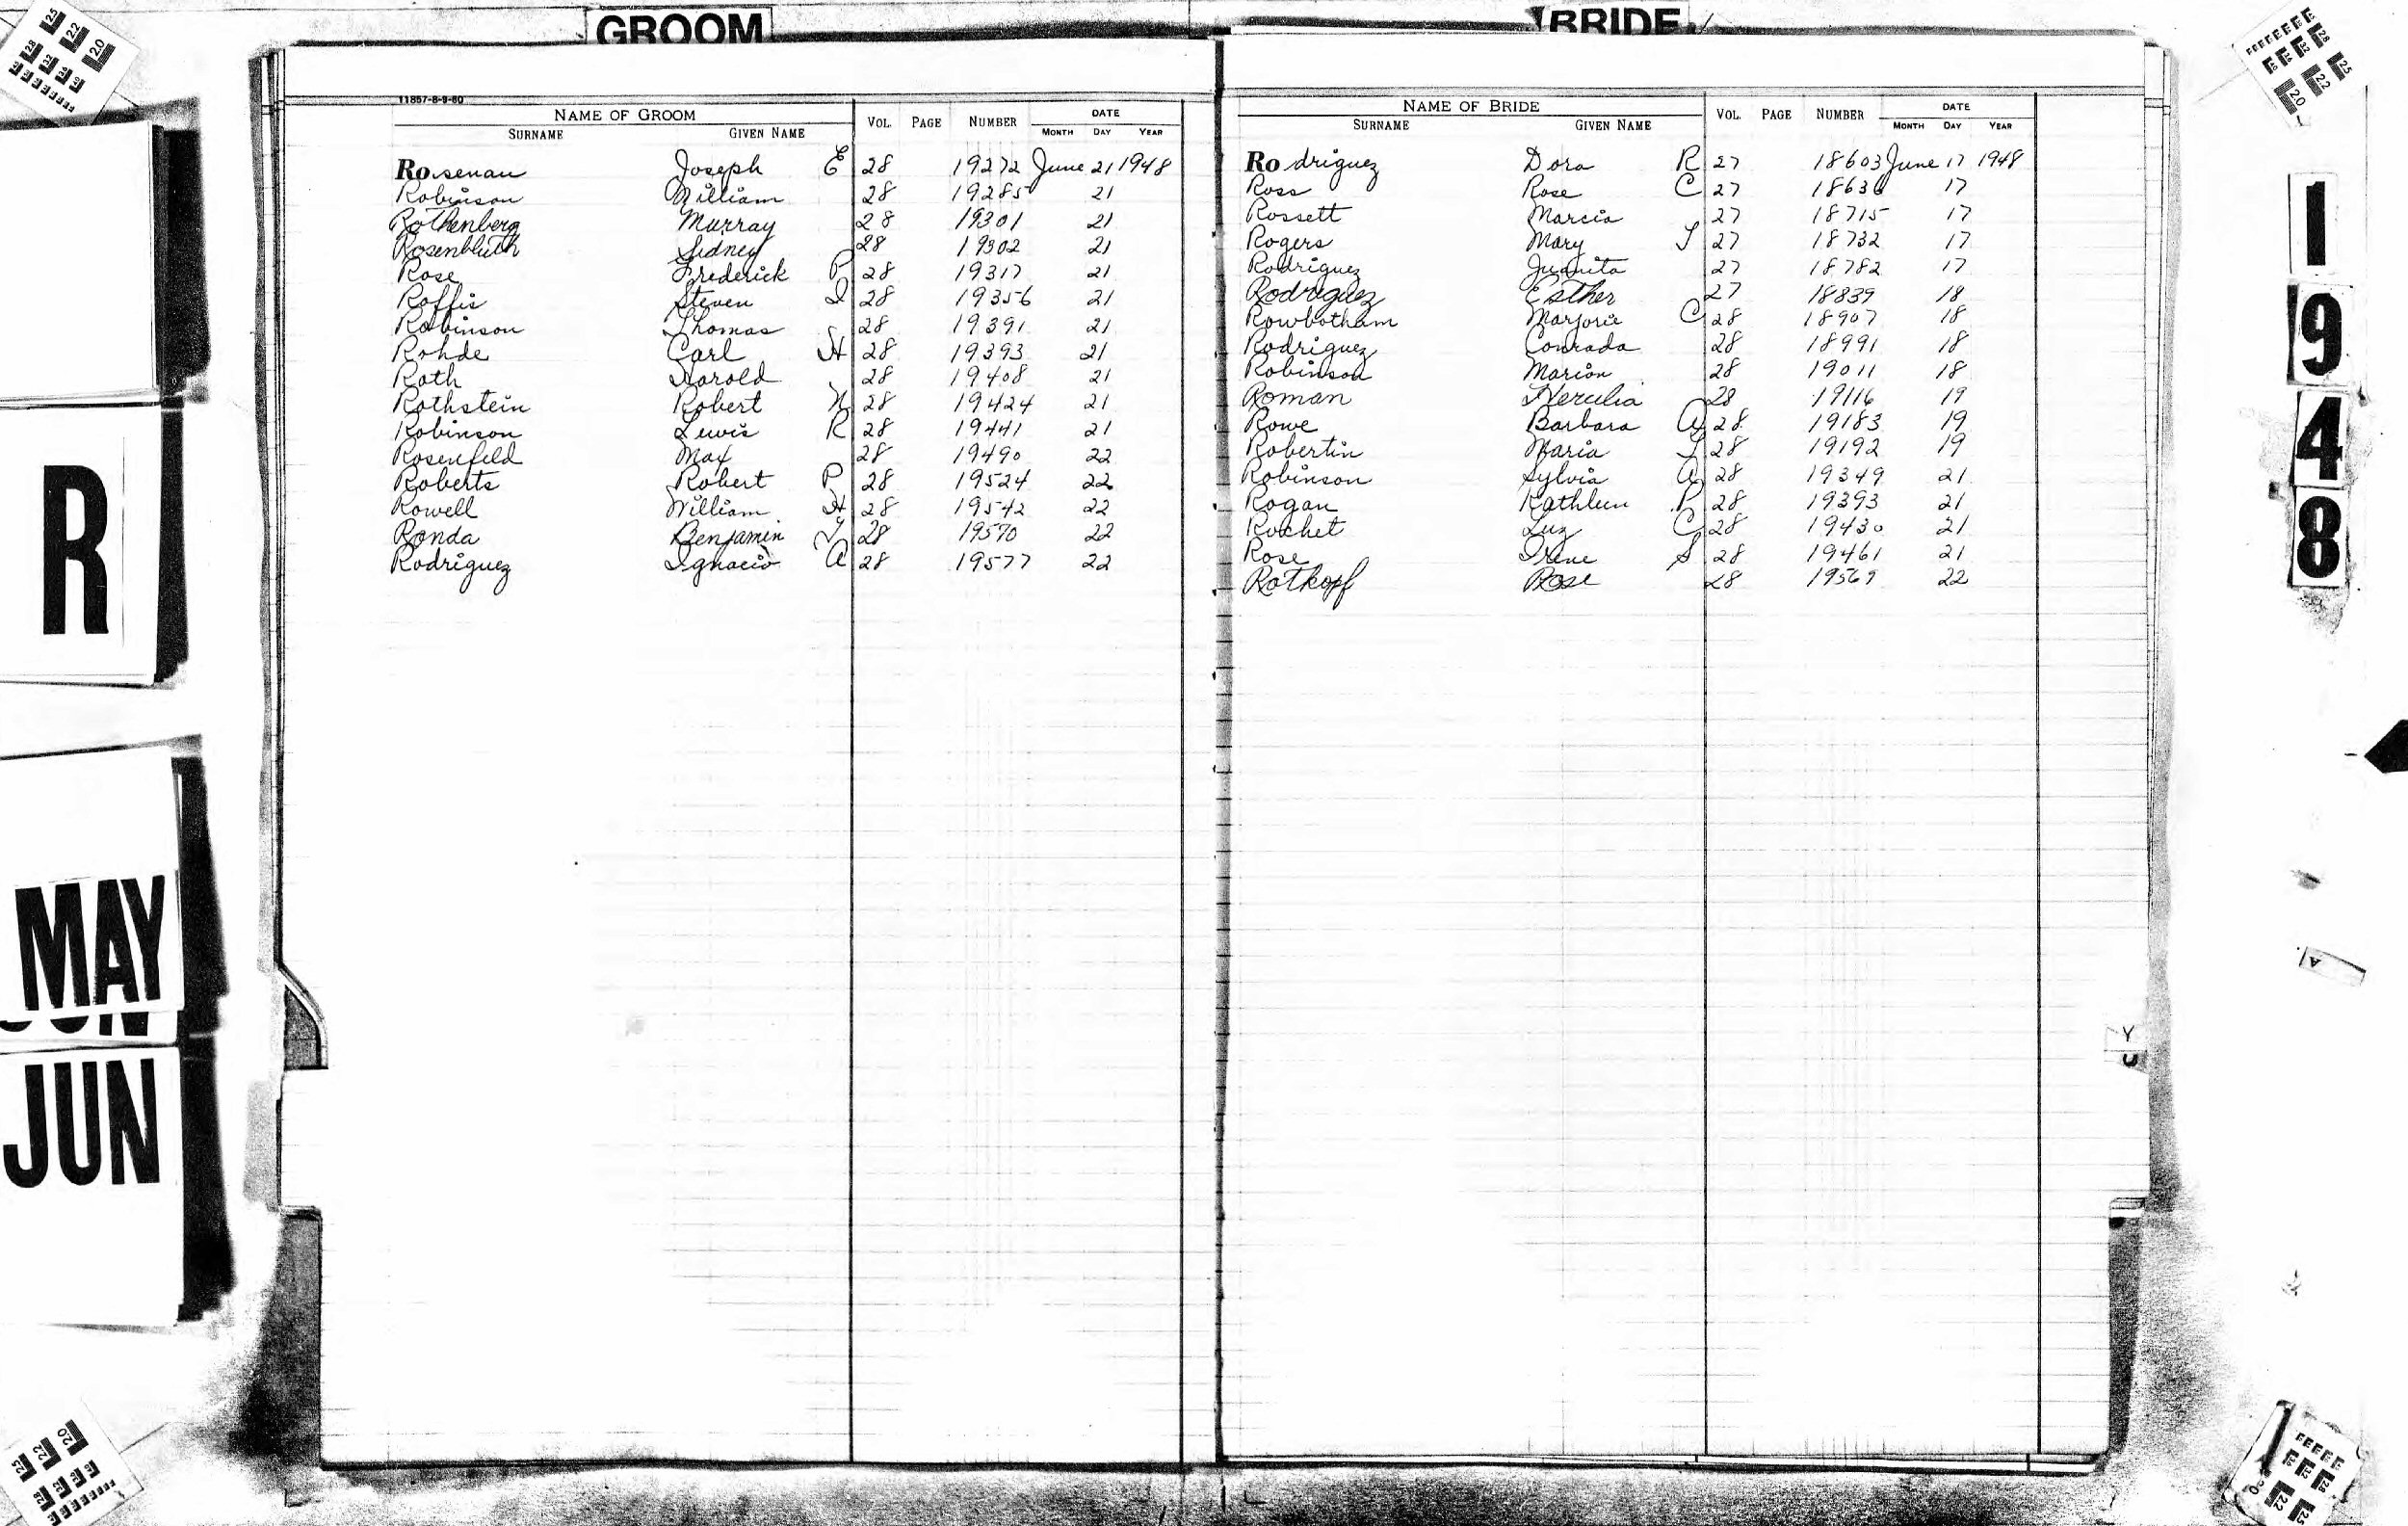 GROOM
11857-8-9-60
NAME OF GROOM
SURNAME GIVEN NAME VOL. PAGE NUMBER DATE MONTH DAY YEAR
Rosenau Joseph E 28 19272 June 21 1948
Robinson William 28 19285 21
Rothenberg Murray 28 19301 21
Rosenbluth Sidney 28 19302 21
Rose Frederick P 28 19317 21
Roffis Steven I 28 19356 21
Robinson Thomas 28 19391 21
Rohde Carl H 28 19393 21
Roth Harold 28 19408 21
Rothstein Robert N 28 19424 21
Robinson Lewis R 28 19441 21
Rosenfeld Max 28 19490 22
Roberts Robert P 28 19524 22
Rowell William H 28 19542 22
Ronda Benjamin 28 19570 22
Rodriguez Ignacio A 28 19577 22
BRIDE
NAME OF BRIDE
SURNAME GIVEN NAME VOL. PAGE NUMBER DATE MONTH DAY YEAR
Rodriguez Dora R 27 18603 June 17 1948
Ross Rose C 27 18636 17
Rossett Marcia 27 18715 17
Rogers Mary T 27 18732 17
Rodriguez Juanita 27 18782 17
Rodriguez Esther 27 18839 18
Rowbotham Marjorie C 28 18907 18
Rodriguez Conrada 28 18991 18
Robinson Marion 28 19011 18
Roman Hercilia 28 19116 19
Rowe Barbara A 28 19183 19
Robertin Maria 28 19192 19
Robinson Sylvia A 28 19349 21
Rogan Kathleen P 28 19393 21
Rochet Luz C 28 19430 21
Rose Irene S 28 19461 21
Rotkopf Rose 28 19569 22
R
MAY
JUN
JUN
1
9
4
8